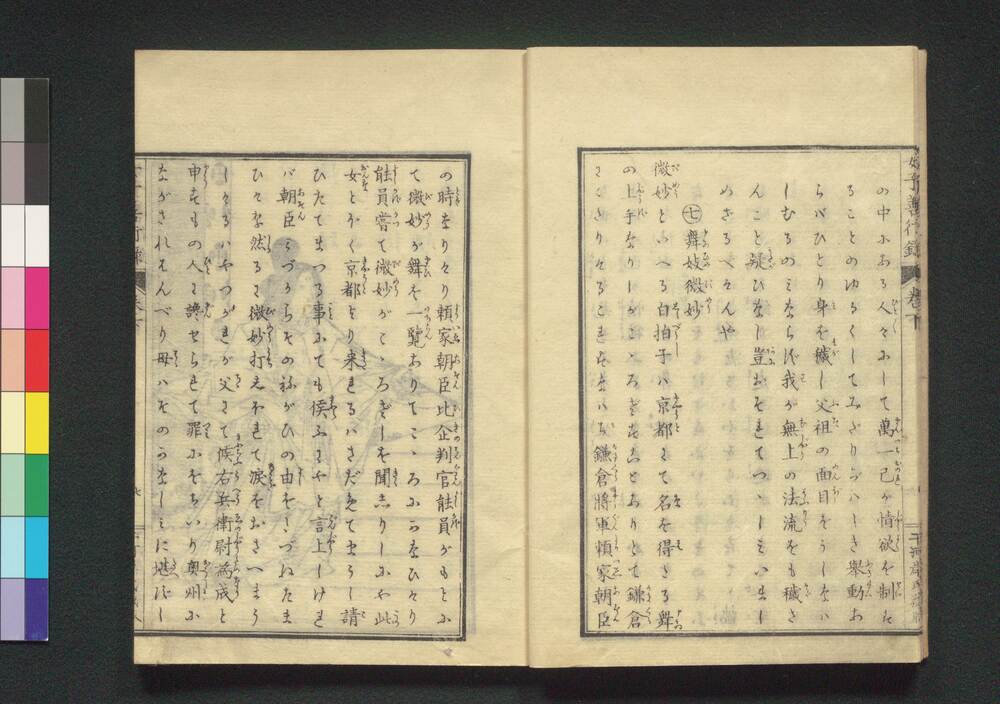 の中にある人々にして萬一己が情欲を制
ることのゆるくしてみだりがはしき舉動あ
らバひとり身を穢し父祖の面目をうしなハ
しむるのミならず我が無上の法流をも穢さ
んこと疑ひなし豈おそれてつゝしミいまし
めざるべけんや
㊆舞妓微妙
微妙といへる白拍子ハ京都にて名を得たる舞
の上手なりしがこゝろざすことありとて鎌倉
にくだりけるこれすなハち鎌倉將軍頼家朝臣
の時なりけり頼家朝臣比企判官能員がもとに
て微妙が舞を一覧ありてこゝろにかなひけり
能員嘗て微妙がこゝろざしを聞しりしにや此
女とほく京都より来れるハさだめてまうし請
ひたてまつる事にても候ふにやと言上しけれ
バ朝臣ミづからその ねがひの由をたづねたま
ひけれ然るに微妙打しをれて涙をおさへまう
しけるハやつがれが父にて候右兵衛尉為成と
申すもの人に讒せられて罪におちいり奥州に
ながされはんべり母ハそのかなしミに堪ずし
善行録
巻下